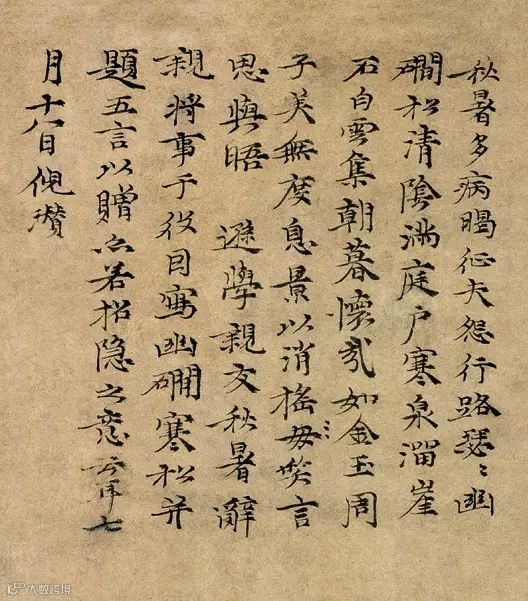 秋暑多病暍征夫怨行路瑟〻幽
磵松清陰滿庭户寒泉溜崖
石白雲集朝暮懷哉如金玉周
子美無度息景以消搖毋笑言
思與晤 遜學親友秋暑辭
親將事于役因寫幽磵寒松并
題五言以贈亦若招隱之意云耳七
月十八日倪瓚
大数跨境